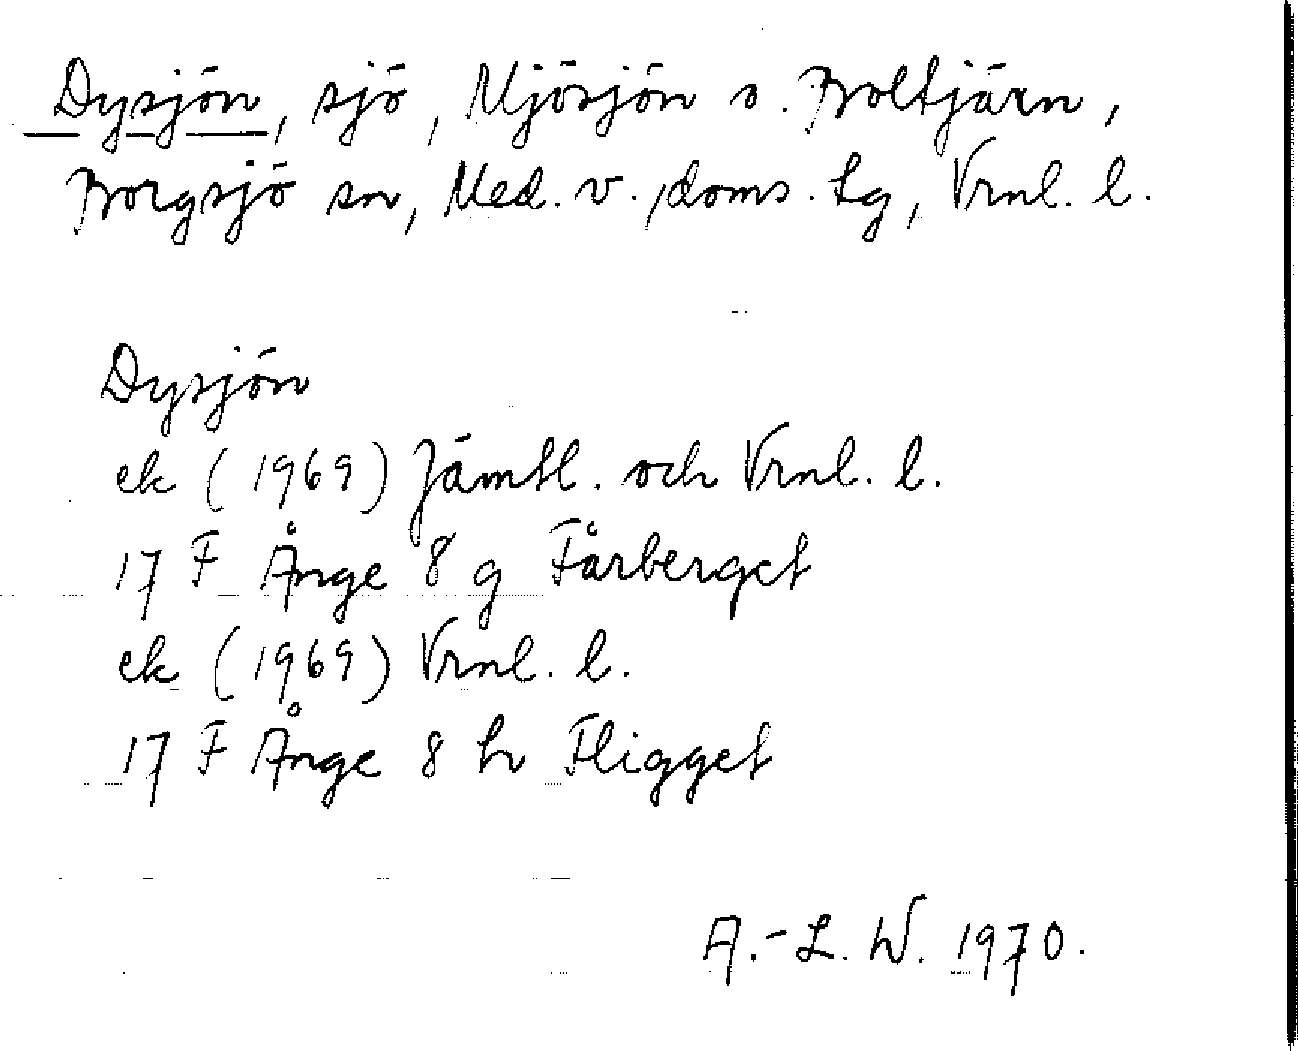 Dysjön, sjö, Mjösjön o. Boltjärn,
Borgsjö sn, Med. v. doms. tg, Vrnl. l.
Dysjön
ek (1969) Jämtl. och Vrnl. l.
17 F Ånge 8 g Fårberget
ek (1969) Vrnl. l.
17 F Ånge 8 h Fligget
A.-L. W. 1970.